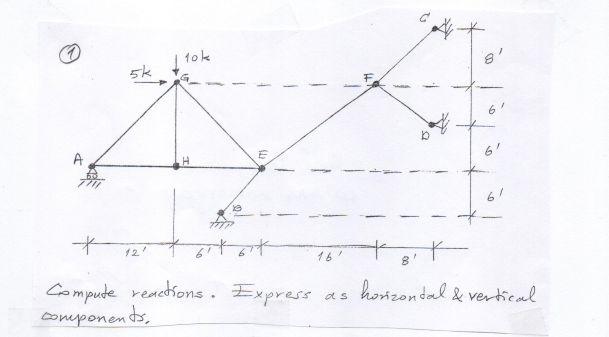 1
10k
5k
G
C
F
D
A
H
E
B
8'
6'
6'
6'
12'
6'
6'
16'
8'
Compute reactions. Express as horizontal & vertical
components.